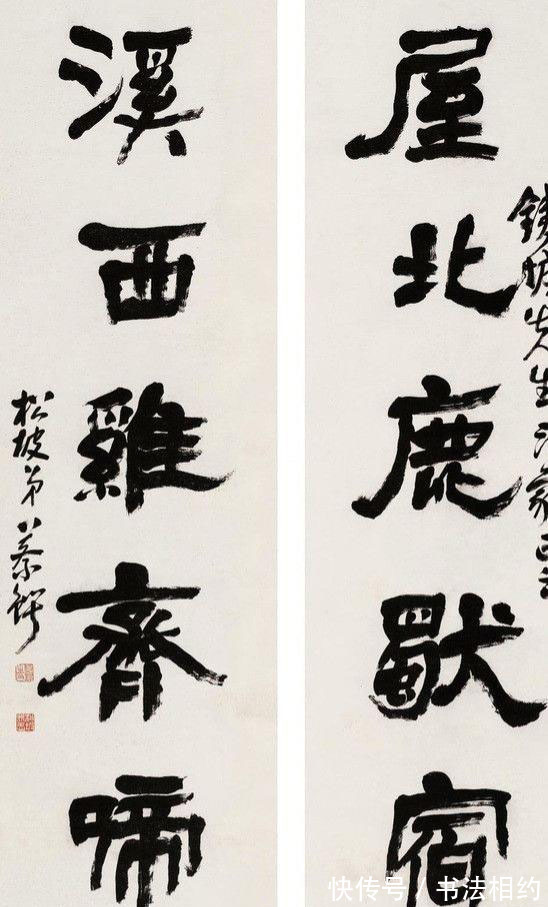 先生法家正之
屋北鹿獨宿
溪西雞齊啼
松坡弟蔡鍔
快传号 / 书法相约